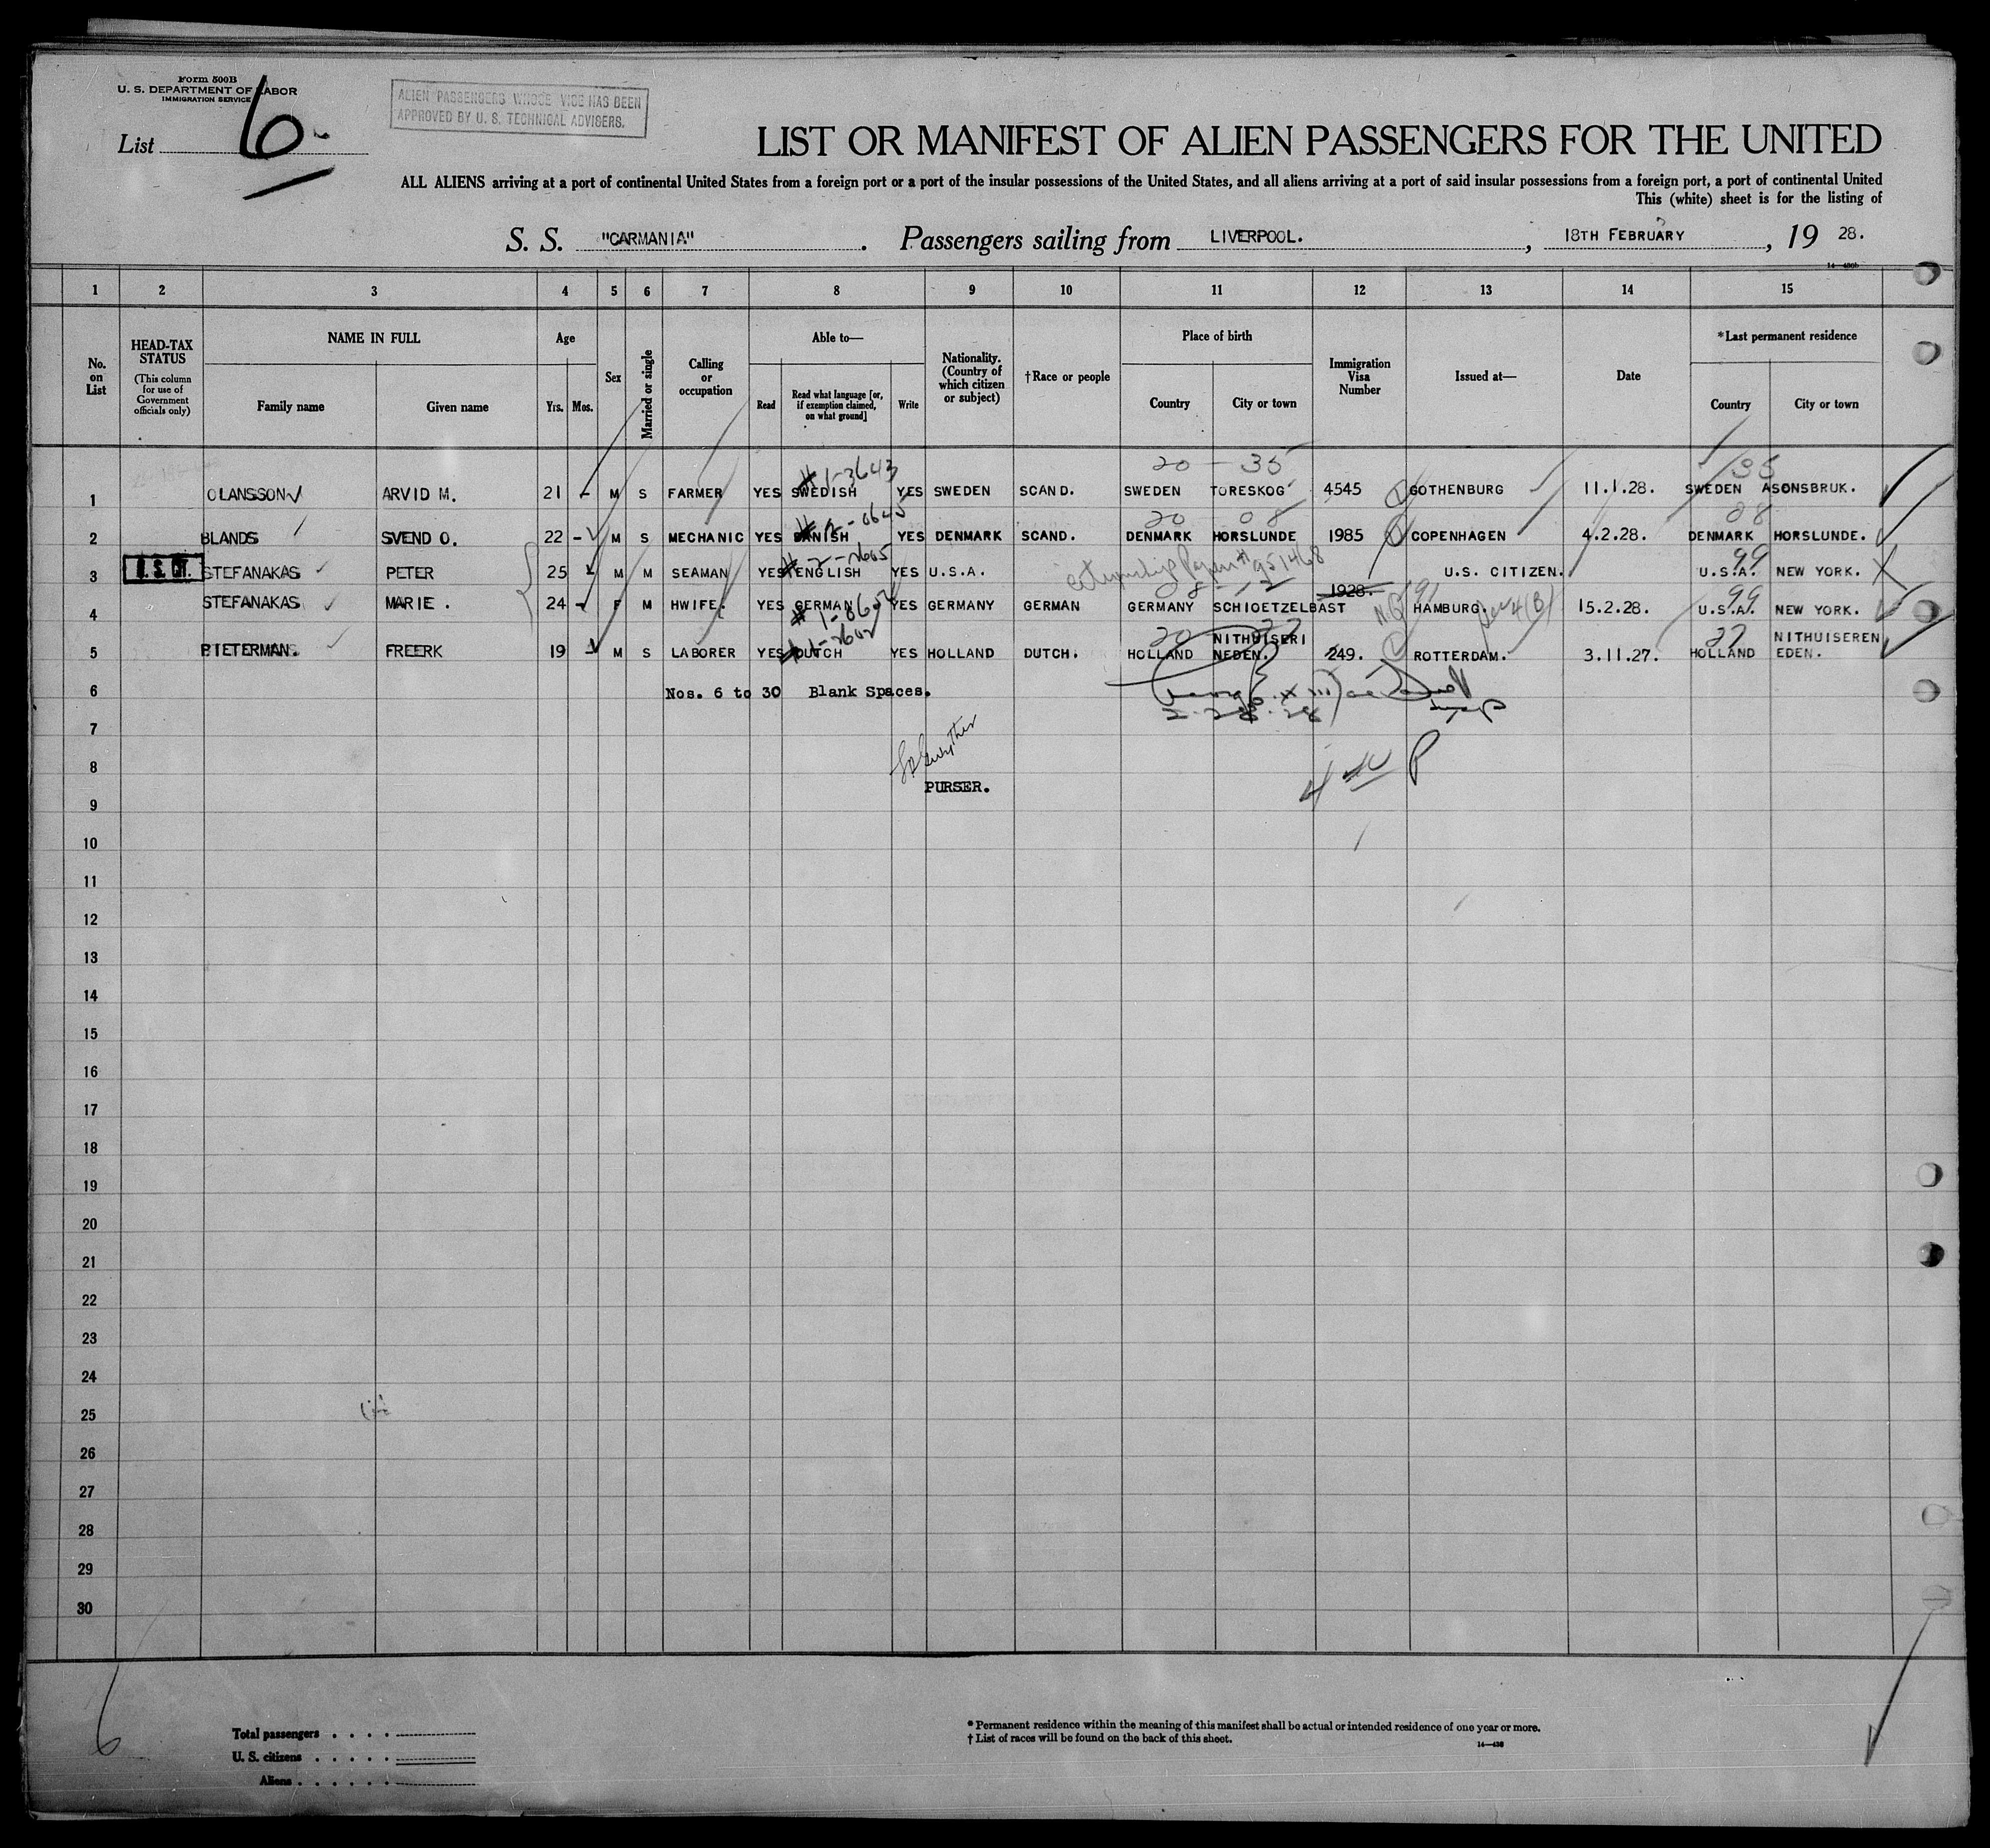 Form 500B
U. S. DEPARTMENT OF LABOR
IMMIGRATION SERVICE
List 6
ALIEN PASSENGERS WHOSE VISE HAS BEEN
APPROVED BY U. S. TECHNICAL ADVISERS.
LIST OR MANIFEST OF ALIEN PASSENGERS FOR THE UNITED
ALL ALIENS arriving at a port of continental United States from a foreign port or a port of the insular possessions of the United States, and all aliens arriving at a port of said insular possessions from a foreign port, a port of continental United
This (white) sheet is for the listing of
S. S. "CARMANIA" . Passengers sailing from LIVERPOOL. , 18TH FEBRUARY , 19 28.
1 2 3 4 5 6 7 8 9 10 11 12 13 14 15
No. on List
HEAD-TAX STATUS (This column for use of Government officials only)
NAME IN FULL
Family name Given name
Age
Yrs. Mos.
Sex
Married or single
Calling or occupation
Able to—
Read
Read what language [or, if exemption claimed, on what ground]
Write
Nationality. (Country of which citizen or subject)
†Race or people
Place of birth
Country City or town
Immigration Visa Number
Issued at—
Date
*Last permanent residence
Country City or town
# 1-3643 20 - 35 35
1 OLANSSON ARVID M. 21 - M S FARMER YES SWEDISH YES SWEDEN SCAND. SWEDEN TORESKOG 4545 GOTHENBURG 11.1.28. SWEDEN ASONSBRUK.
20 08 08
2 BLANDS SVEND O. 22 - M S MECHANIC YES DANISH YES DENMARK SCAND. DENMARK HORSLUNDE 1985 COPENHAGEN 4.2.28. DENMARK HORSLUNDE.
99
3 U.S. CIT. STEFANAKAS PETER 25 M M SEAMAN YES ENGLISH YES U.S.A. U.S. CITIZEN. U.S.A. NEW YORK.
1928. 99
4 STEFANAKAS MARIE . 24 - F M HWIFE. YES GERMAN YES GERMANY GERMAN GERMANY SCHIOETZELBAST HAMBURG. 15.2.28. U.S.A. NEW YORK.
20 27 27
5 PIETERMAN. FREERK 19 - M S LABORER YES DUTCH YES HOLLAND DUTCH. HOLLAND NITHUISERI NEDEN. 249. ROTTERDAM. 3.11.27. HOLLAND NITHUISEREN EDEN.
6 Nos. 6 to 30 Blank Spaces.
7
8
PURSER.
9
10
11
12
13
14
15
16
17
18
19
20
21
22
23
24
25
26
27
28
29
30
6
Total passengers . . . .
U. S. citizens . . . . .
Aliens . . . . . .
* Permanent residence within the meaning of this manifest shall be actual or intended residence of one year or more.
† List of races will be found on the back of this sheet.
14—430